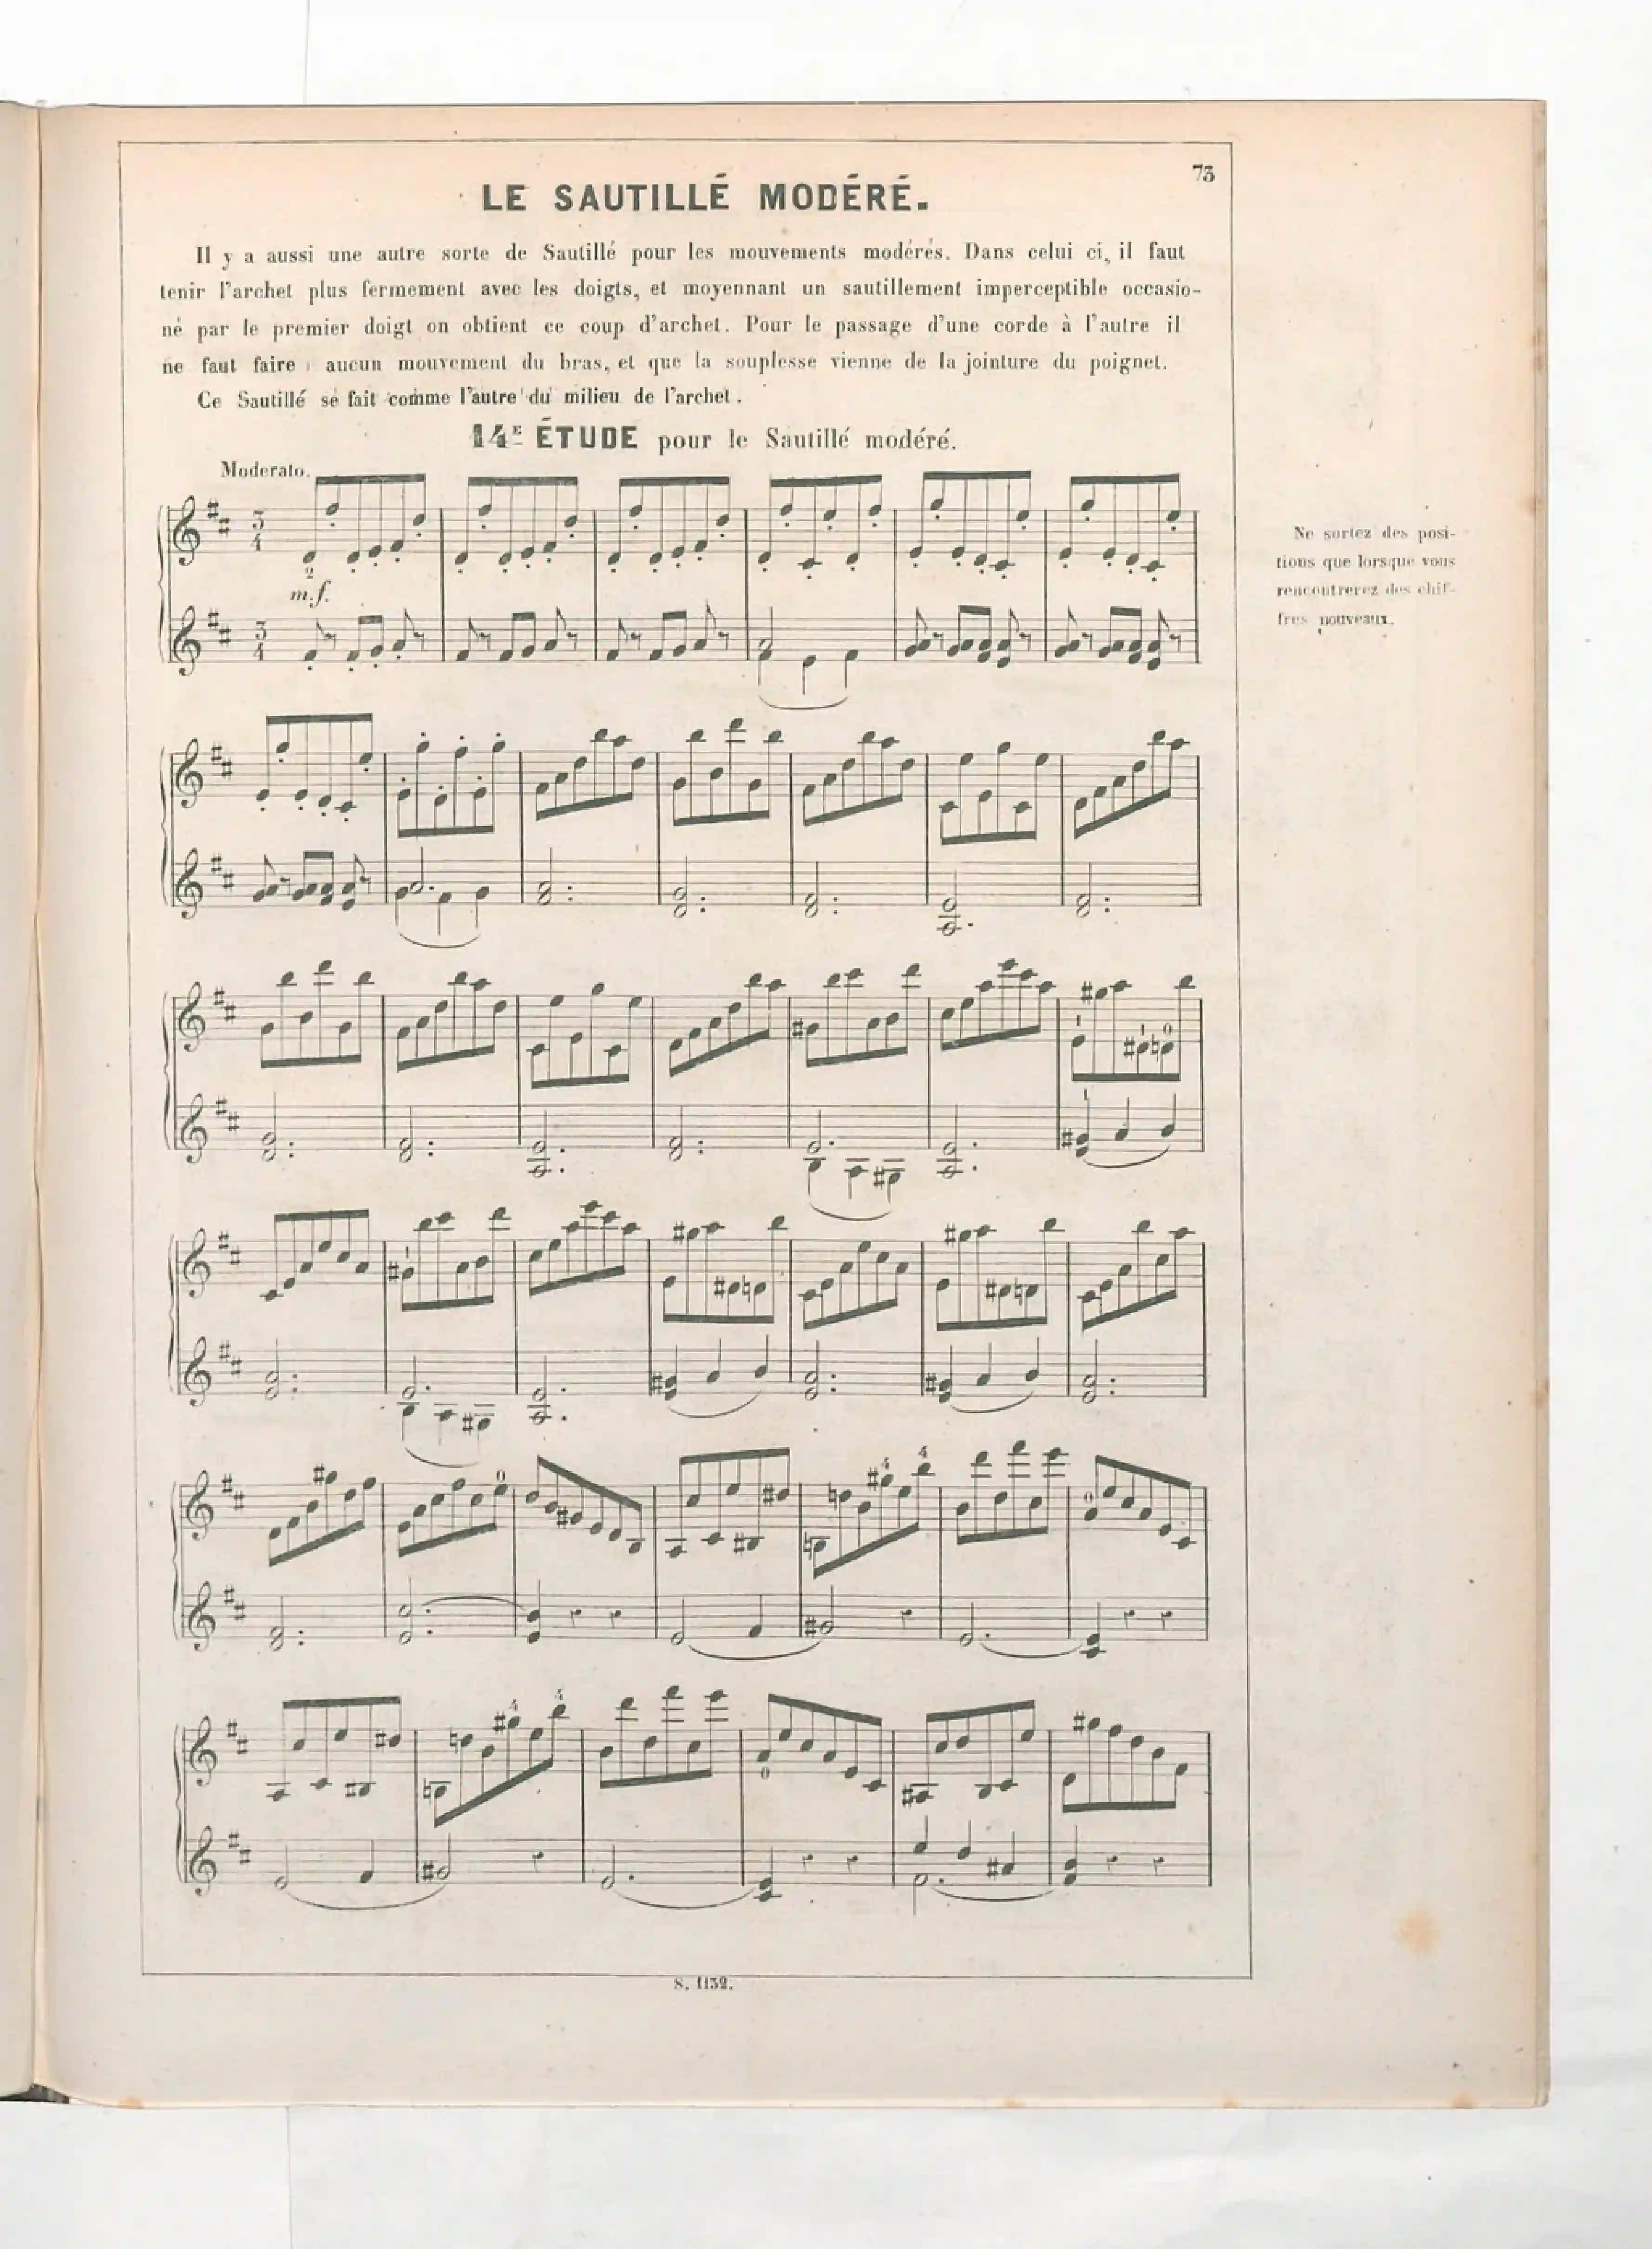 73
LE SAUTILLÉ MODÉRÉ.
Il y a aussi une autre sorte de Sautillé pour les mouvements modérés. Dans celui ci, il faut
tenir l'archet plus fermement avec les doigts, et moyennant un sautillement imperceptible occasio-
né par le premier doigt on obtient ce coup d'archet. Pour le passage d'une corde à l'autre il
ne faut faire aucun mouvement du bras, et que la souplesse vienne de la jointure du poignet.
Ce Sautillé se fait comme l'autre du milieu de l'archet.
14E ÉTUDE pour le Sautillé modéré.
Moderato.
3
4
2
m.f.
3
4
Ne sortez des posi-
tions que lorsque vous
rencontrerez des chif-
fres nouveaux.
1 1 0
1
1
0 4 4
0
4 4
0
S. 1132.